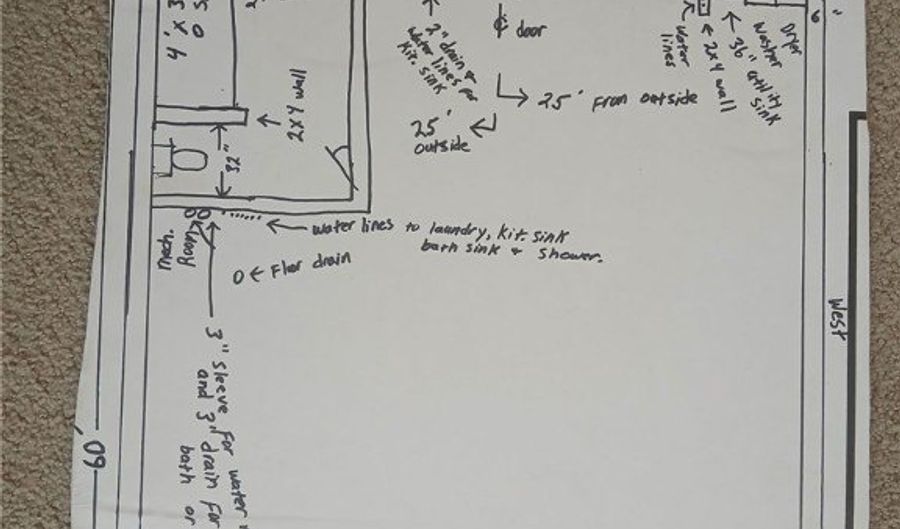 5 0
4' X 3
2x4 wall
32"
2" drain &
water lines for
kit. sink
¢ door
25' From outside
25'
outside
water
lines
2x4 wall
36" utility
sink
washer
Dryer
6"
West
water lines to laundry, kit. sink
bath sink & shower.
Mech.
Room
O ← Flor drain
3" sleeve for water
and 3" drain for
bath or
60'